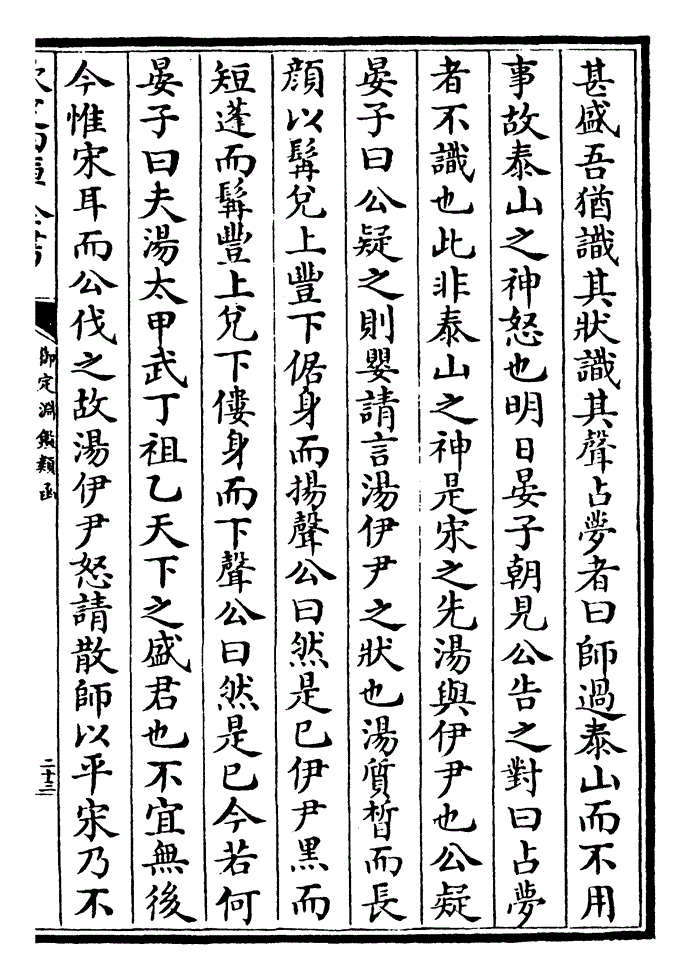 甚盛吾猶識其狀識其聲占夢者曰師過泰山而不用
事故泰山之神怒也明日晏子朝見公告之對曰占夢
者不識也此非泰山之神是宋之先湯與伊尹也公疑
晏子曰公疑之則嬰請言湯伊尹之狀也湯質晳而長
顔以髯兌上豐下倨身而揚聲公曰然是已伊尹黒而
短蓬而髯豐上兌下僂身而下聲公曰然是已今若何
晏子曰夫湯太甲武丁祖乙天下之盛君也不宜無後
今惟宋耳而公伐之故湯伊尹怒請散師以平宋乃不
御定淵鑑類函
二十三